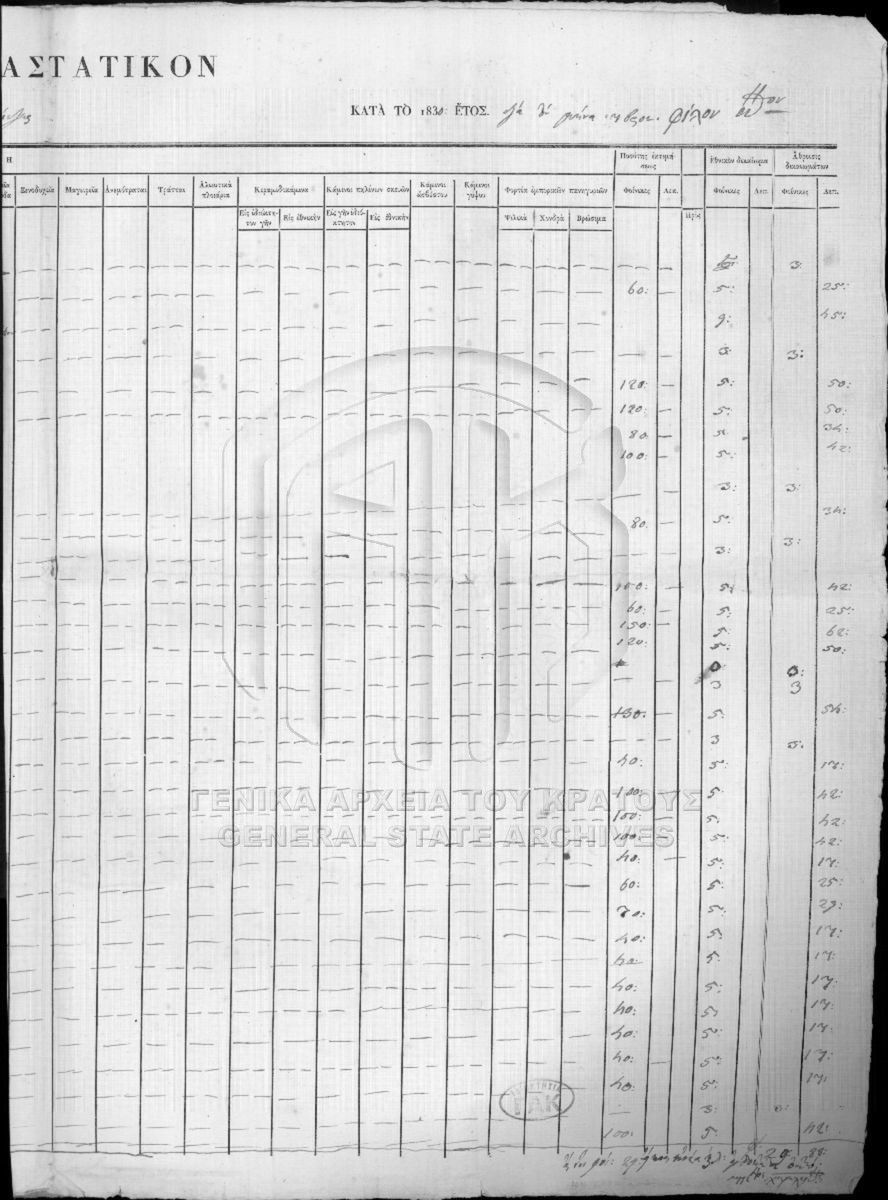 ΑΣΤΑΤΙΚΟΝ
ΚΑΤΑ ΤΟ 1830: ΕΤΟΣ. φύλον
Η
Ποσότης ἐκτιμήσεως
Ἐθνικὸν δικαίωμα
Ἄθροισις δικαιωμάτων
Ξενοδοχεῖα Μαγειρεῖα Ἀνεμότραται Τράτται Ἁλιευτικὰ πλοιάρια Κεραμιδικάμινα Κάμινοι πηλίνων σκευῶν Κάμινοι ἀσβέστου Κάμινοι γύψου Φορτία ἐμπορικῶν πανηγυριῶν Φοίνικες Λεπ. Φοίνικες Λεπ. Φοίνικες Λεπ.
Εἰς ἰδιόκτητον γῆν Εἰς ἐθνικὴν Εἰς γῆν ἰδιόκτητον Εἰς ἐθνικὴν Ψιλικὰ Χονδρὰ Βρώσιμα Πρὸς
3:
60: 5: 25:
9: 45:
3: 3:
120: 5: 50:
120: 5: 50:
80: 5: 34:
100: 5: 42:
3: 3:
80: 5: 34:
3: 3:
100: 5: 42:
60: 5: 25:
150: 5: 62:
120: 5: 50:
3: 3:
3 3
130: 5: 54:
3 3:
40: 5: 17:
100: 5: 42:
100: 5: 42:
100: 5: 42:
40: 5: 17:
60: 5: 25:
70: 5: 29:
40: 5: 17:
40: 5: 17:
40: 5: 17:
40: 5: 17:
40: 5: 17:
40: 5: 17:
40: 5: 17:
3: 3:
100: 5: 42:
ΓΕΝΙΚΑ ΑΡΧΕΙΑ ΤΟΥ ΚΡΑΤΟΥΣ
GENERAL STATE ARCHIVES
ΓΑΚ